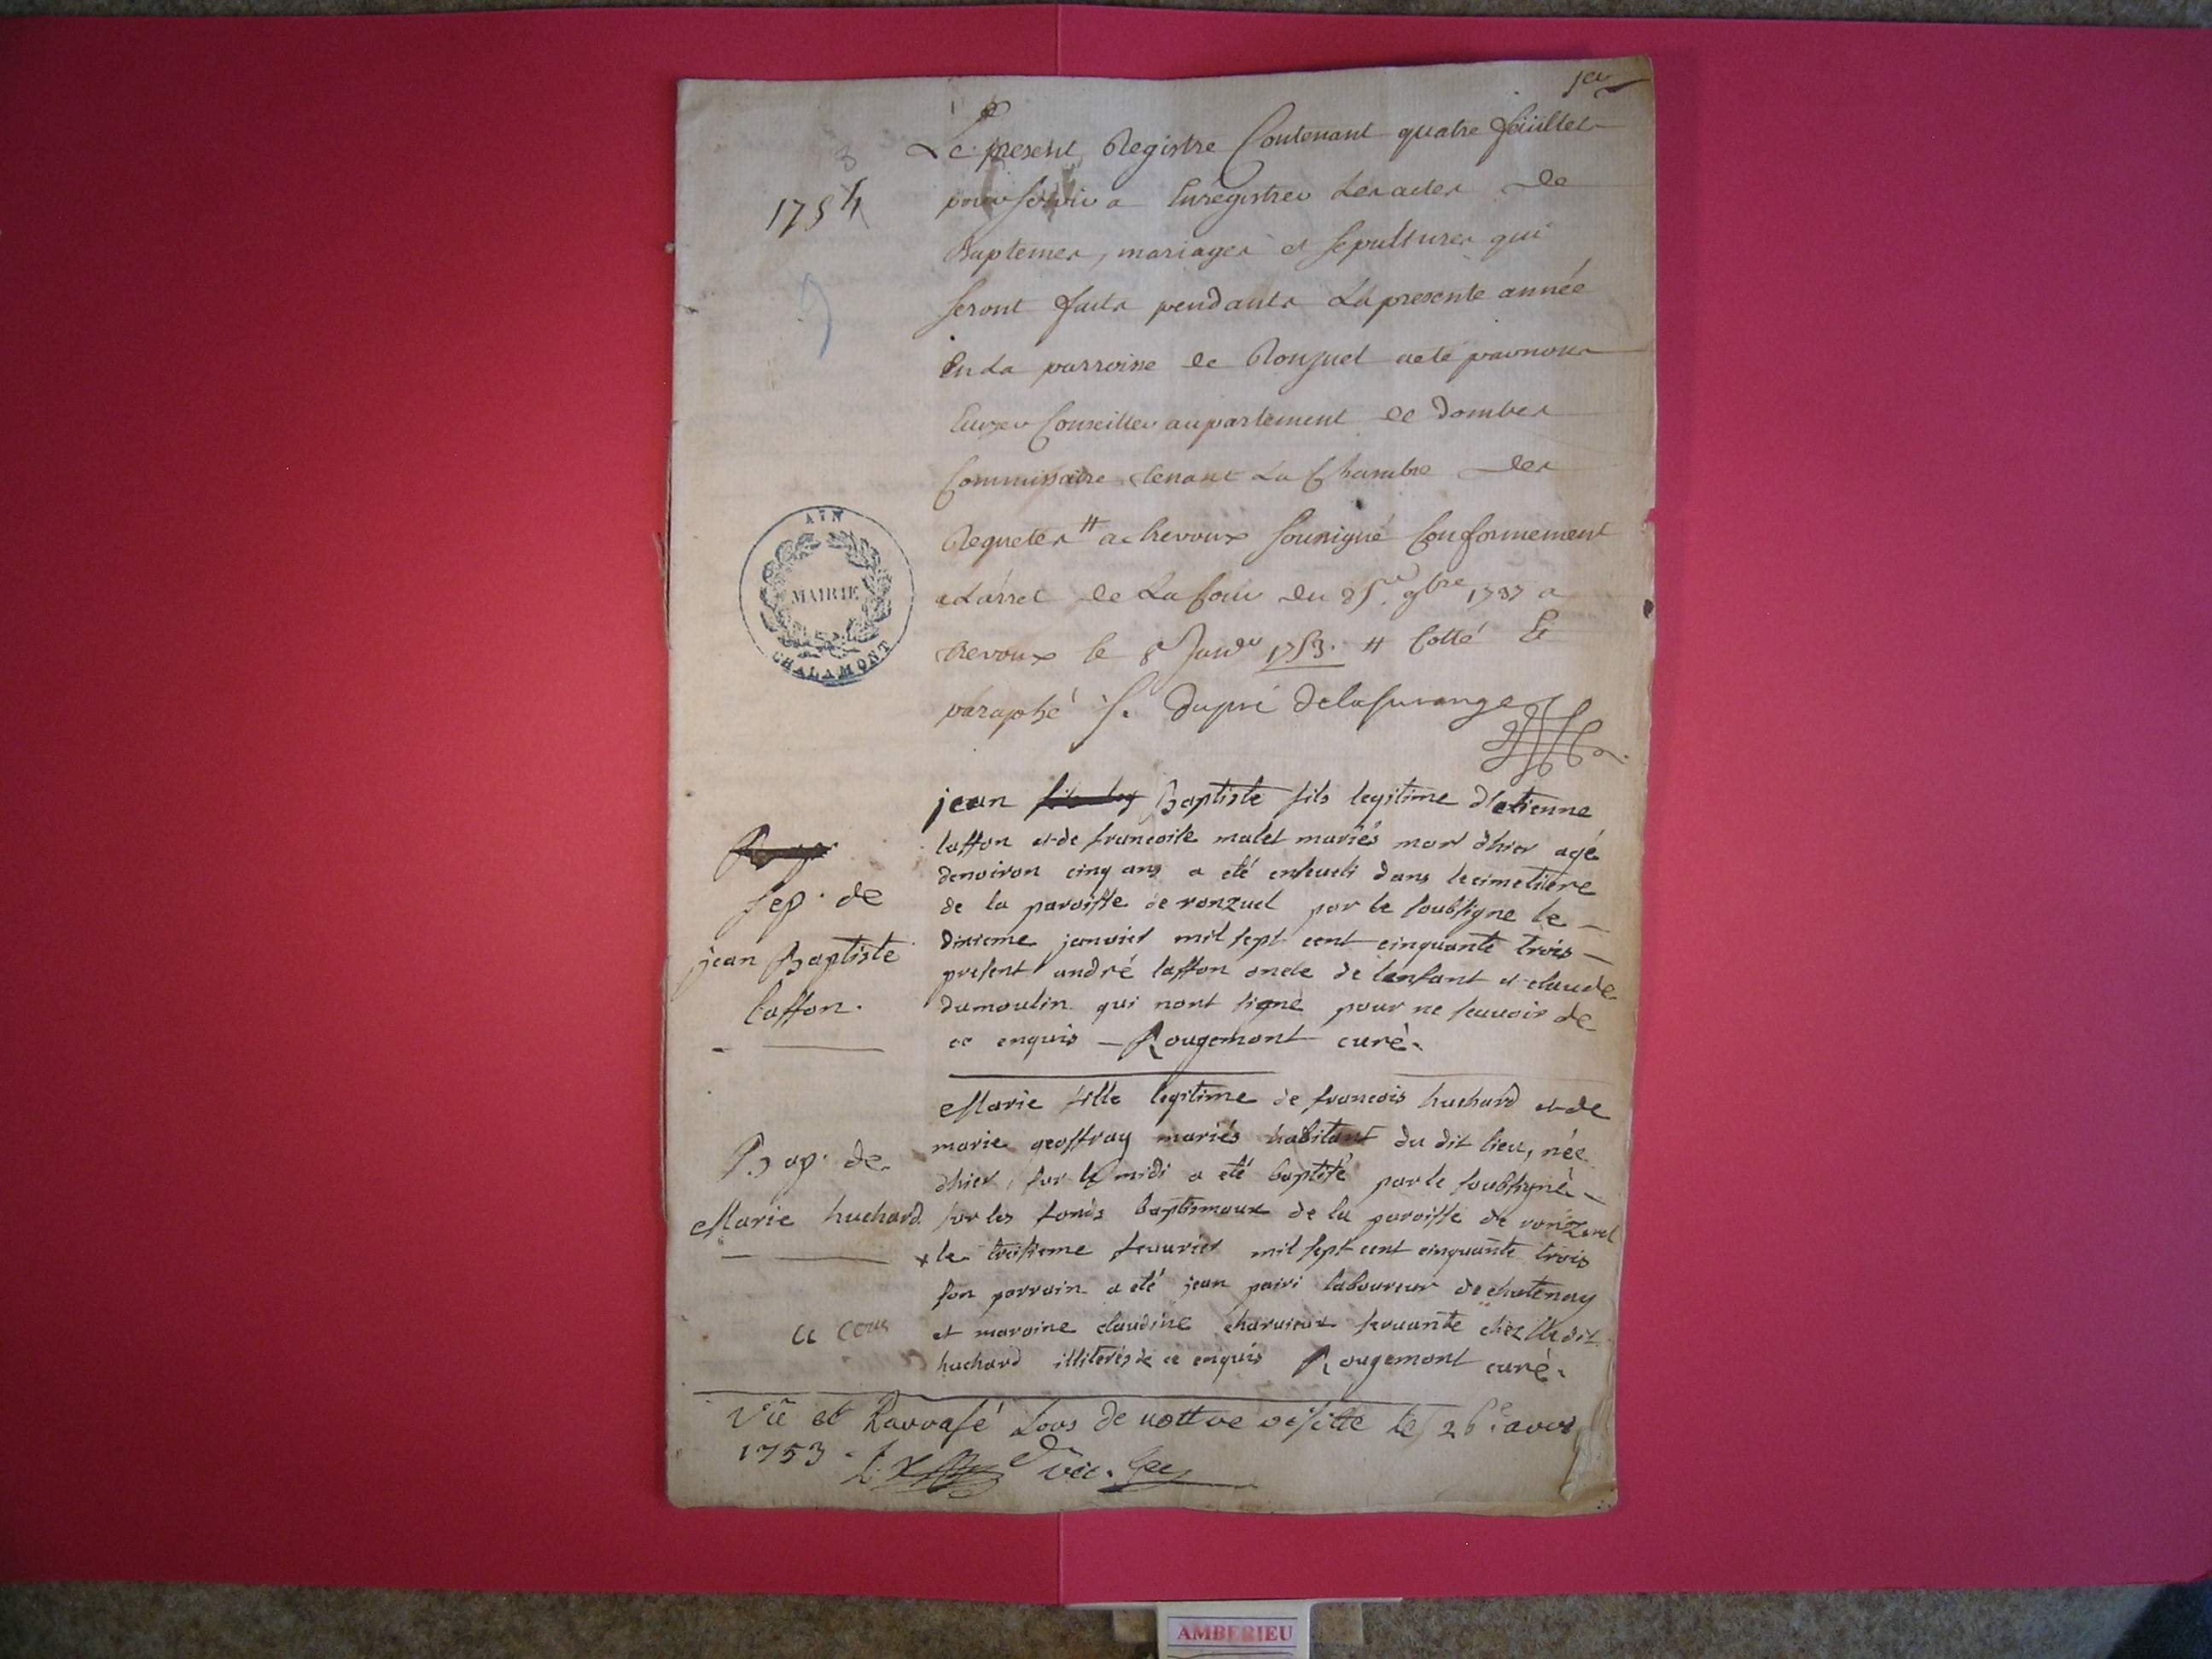 1er
Le present Registre Contenant quatre feüillets
1754
3
pour servir a Enregistrer Les actes de
Baptemes, mariages et sepultures qui
seront faits pendants La presente année
En La parroisse de Ronzuel a eté par nous
Conseiller au parlement de Dombes
Commissaire tenant La Chambre des
Requetes # a trevoux soussigné Conformement
a L'arret de La Cour du 9bre 1737 a
trevoux le 8 Janvr 1753. # Cotté Et
paraphé S. Dupré Delasurange
AIN
MAIRIE
CHALAMONT
jean Baptiste fils legitime d'etienne
laffon et de francoise malet mariés mort dhier agé
denviron cinq ans a eté enseveli dans le cimetiere
de la paroisse de ronzuel par le soubsigne le
dixieme janvier mil sept cent cinquante trois
present andré laffon oncle de lenfant et claude
dumoulin qui nont signé pour ne scavoir de
ce enquis Rougemont curé.
sep. de
jean Baptiste
laffon.
Marie fille legitime de francois huchard et de
marie geoffray mariés habitant du dit lieu, née
dhier sur le midi a eté baptisé par le soubsigné
sur les fonds baptismaux de la paroisse de ronzuel
le troisieme fevurier mil sept cent cinquante trois
son parrain a eté jean pairi laboureur de chatenay
et maraine claudine charvieux servante chez ledit
huchard illiterés de ce enquis Rougemont curé.
Bap. de
Marie huchard
Vü et Parrafé Lors de nottre visitte le 26e avril
1753
AMBERIEU